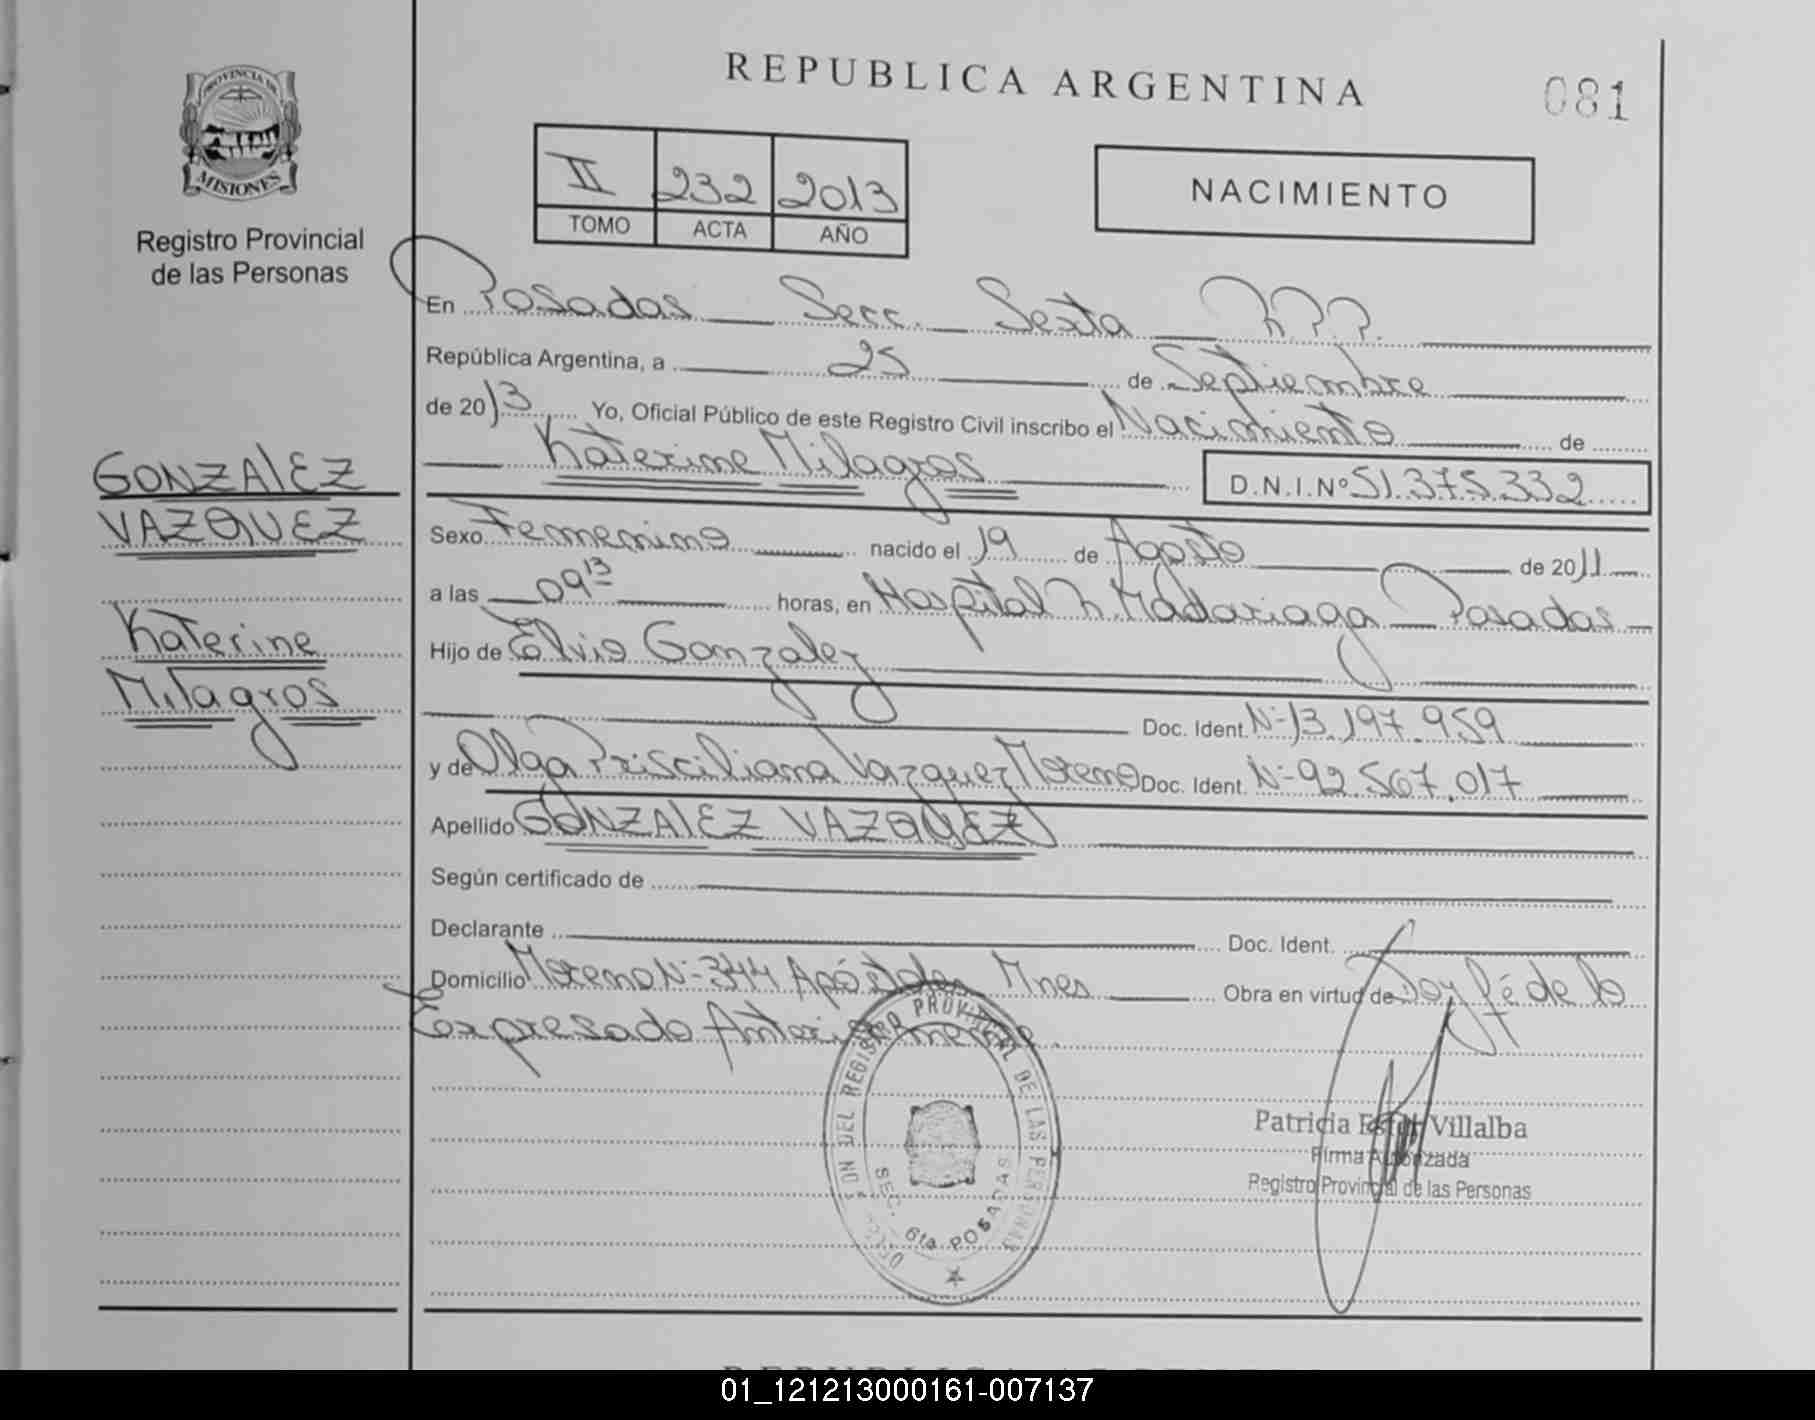 REPUBLICA ARGENTINA
081
PROVINCIA DE
MISIONES
Registro Provincial
de las Personas
II 232 2013
TOMO ACTA AÑO
NACIMIENTO
En Posadas Secc. Sexta R.P.P.
República Argentina, a 25 de Septiembre
de 2013 Yo, Oficial Público de este Registro Civil inscribo el Nacimiento de
Katerine Milagros D.N.I.Nº 51.375.332
GONZALEZ
VAZQUEZ
Katerine
Milagros
Sexo Femenino nacido el 19 de Agosto de 2011
a las 09 13 horas, en Hospital R. Madariaga Posadas
Hijo de Elvio Gonzalez
Doc. Ident. Nº 13.197.959
y de Olga Prisciliana Vazquez Moreno Doc. Ident. Nº 92.567.017
Apellido GONZALEZ VAZQUEZ
Según certificado de
Declarante Doc. Ident.
Domicilio Moreno Nº 344 Apóstoles Mnes Obra en virtud de Doy fé de lo
Expresado Anteriormente.
DIRECCION DEL REGISTRO PROVINCIAL DE LAS PERSONAS
SEC. 6ta POSADAS
Patricia Villalba
Firma Autorizada
Registro Provincial de las Personas
REPUBLICA ARGENTINA
01_121213000161-007137